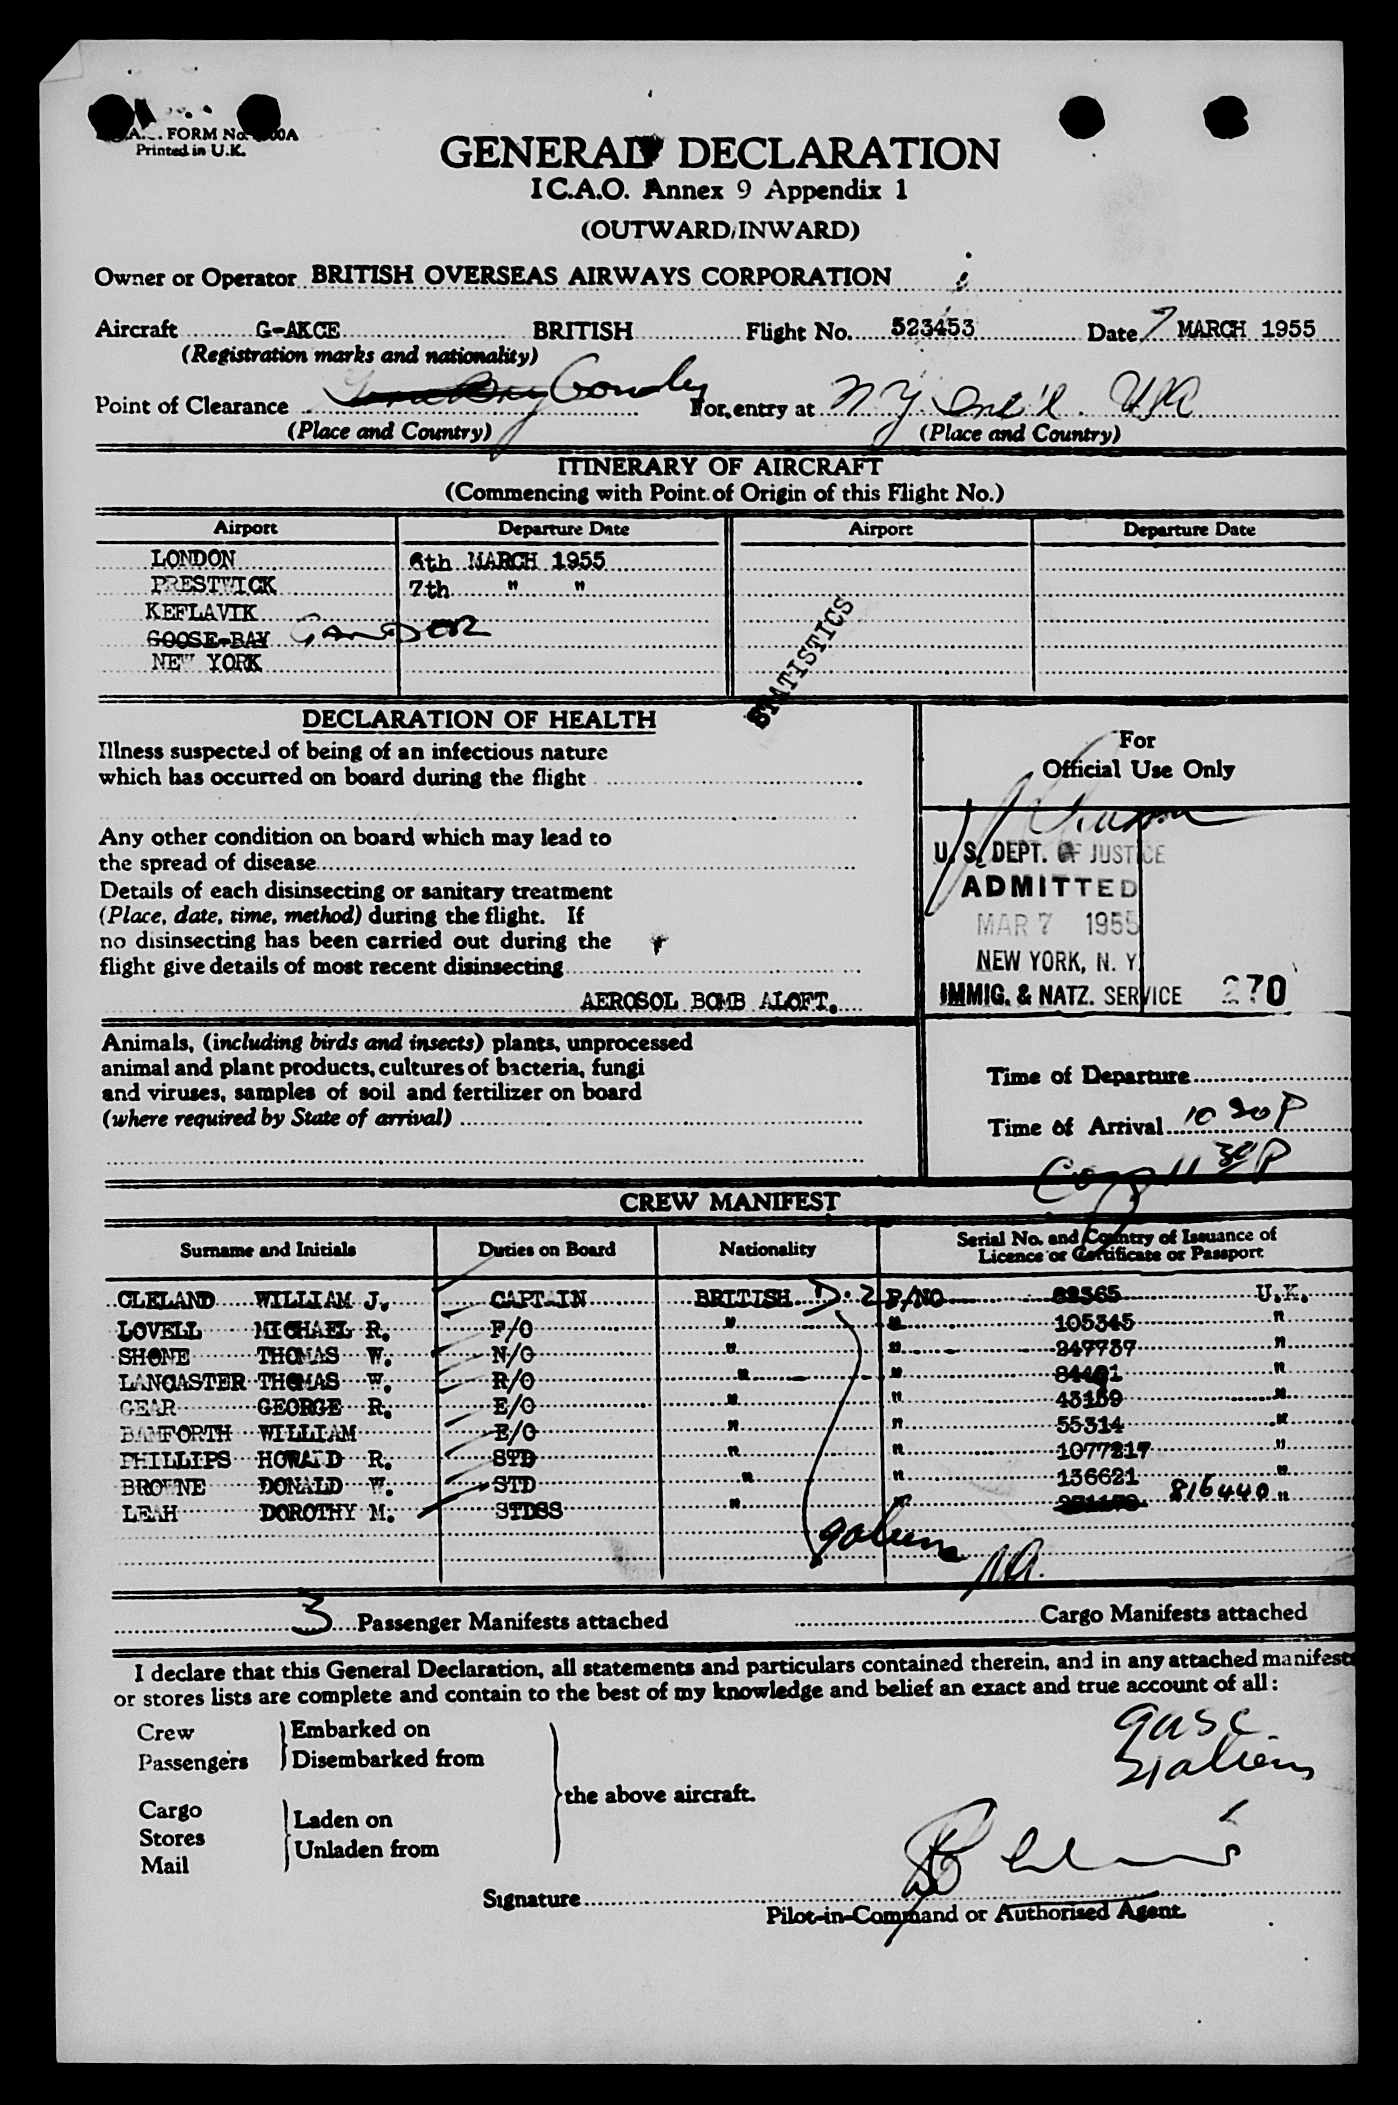 FORM No.
Printed in U.K.
GENERAL DECLARATION
I C.A.O. Annex 9 Appendix 1
(OUTWARD/INWARD)
Owner or Operator BRITISH OVERSEAS AIRWAYS CORPORATION
Aircraft G-AKCE BRITISH Flight No. 523453 Date 7 MARCH 1955
(Registration marks and nationality)
Point of Clearance For entry at NY
(Place and Country) (Place and Country)
ITINERARY OF AIRCRAFT
(Commencing with Point of Origin of this Flight No.)
Airport Departure Date Airport Departure Date
LONDON 6th MARCH 1955
PRESTWICK 7th " "
KEFLAVIK
GOOSE-BAY GANDER
NEW YORK
STATISTICS
DECLARATION OF HEALTH
Illness suspected of being of an infectious nature
which has occurred on board during the flight
Any other condition on board which may lead to
the spread of disease
Details of each disinsecting or sanitary treatment
(Place, date, time, method) during the flight. If
no disinsecting has been carried out during the
flight give details of most recent disinsecting
AEROSOL BOMB ALOFT.
For
Official Use Only
U. S. DEPT. OF JUSTICE
ADMITTED
MAR 7 1955
NEW YORK, N. Y.
IMMIG. & NATZ. SERVICE 270
Animals, (including birds and insects) plants, unprocessed
animal and plant products, cultures of bacteria, fungi
and viruses, samples of soil and fertilizer on board
(where required by State of arrival)
Time of Departure
Time of Arrival 10 20 P
CREW MANIFEST
Surname and Initials Duties on Board Nationality Serial No. and Country of Issuance of
Licence or Certificate or Passport
CLELAND WILLIAM J. CAPTAIN BRITISH P/NO 82365 U.K.
LOVELL MICHAEL R. F/O " " 105345 "
SHONE THOMAS W. N/O " " 249737 "
LANCASTER THOMAS W. R/O " " "
GEAR GEORGE R. E/O " " 43159 "
BAMFORTH WILLIAM E/O " " 55314 "
PHILLIPS HOWARD R. STD " " 1077217 "
BROWNE DONALD W. STD " " 136621 "
LEAH DOROTHY M. STDSS " " 816440 "
3 Passenger Manifests attached Cargo Manifests attached
I declare that this General Declaration, all statements and particulars contained therein, and in any attached manifests
or stores lists are complete and contain to the best of my knowledge and belief an exact and true account of all:
Crew Embarked on
Passengers Disembarked from
the above aircraft.
Cargo Laden on
Stores
Mail Unladen from
Signature
Pilot-in-Command or Authorised Agent.